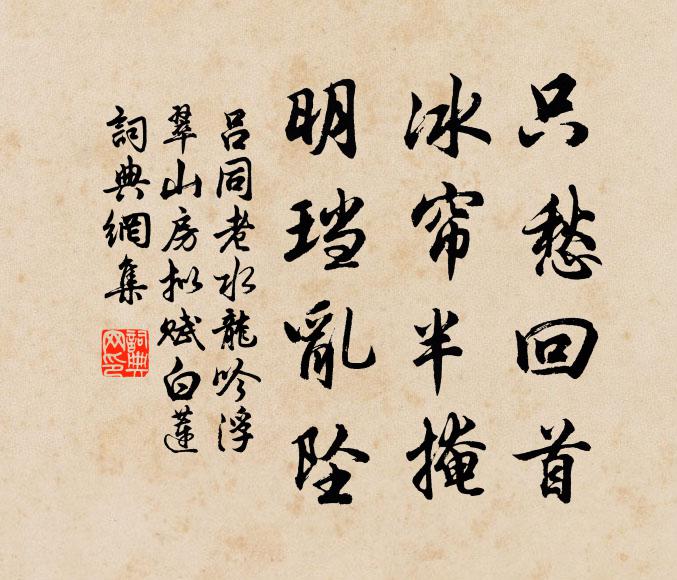 只愁回首
冰帘半掩
明珰亂坠
吕同老水龍吟浮
翠山房拟赋白莲
詞典網集
詞典網印